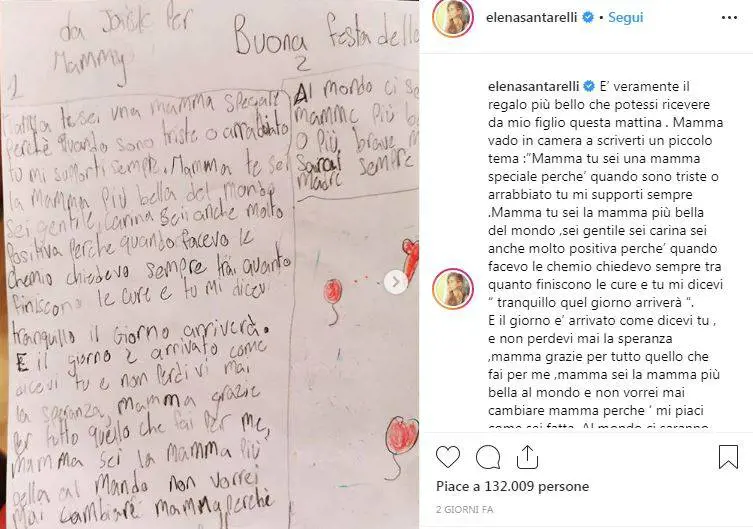 da Jack Per
Mammy
Buona festa della
1
Mamma te sei una mamma speciale
Perchè quando sono triste o arrabbiato
tu mi supporti sempre. Mamma te sei
la mamma più bella del mondo
sei gentile, carina sei anche molto
Positiva Perche quando facevo le
chemio chiedevo sempre trai quanto
finiscono le cure e tu mi dicevi
tranquillo il Giorno arriverà.
E il giorno è arrivato come
dicevi tu e non perdivi mai
la speranza, mamma grazie
per tutto quello che fai per me,
mamma sei la mamma più
bella al Mondo non vorrei
mai cambiare mamma perchè
2
Al mondo ci sa
mamme più be
o più brave m
sarai sempre
madre
elenasantarelli • Segui
elenasantarelli E' veramente il
regalo più bello che potessi ricevere
da mio figlio questa mattina . Mamma
vado in camera a scriverti un piccolo
tema :"Mamma tu sei una mamma
speciale perche' quando sono triste o
arrabbiato tu mi supporti sempre
.Mamma tu sei la mamma più bella
del mondo ,sei gentile sei carina sei
anche molto positiva perche' quando
facevo le chemio chiedevo sempre tra
quanto finiscono le cure e tu mi dicevi
" tranquillo quel giorno arriverà ".
E il giorno e' arrivato come dicevi tu ,
e non perdevi mai la speranza
,mamma grazie per tutto quello che
fai per me ,mamma sei la mamma più
bella al mondo e non vorrei mai
cambiare mamma perche ' mi piaci
come sei fatta. Al mondo ci saranno
Piace a 132.009 persone
2 GIORNI FA